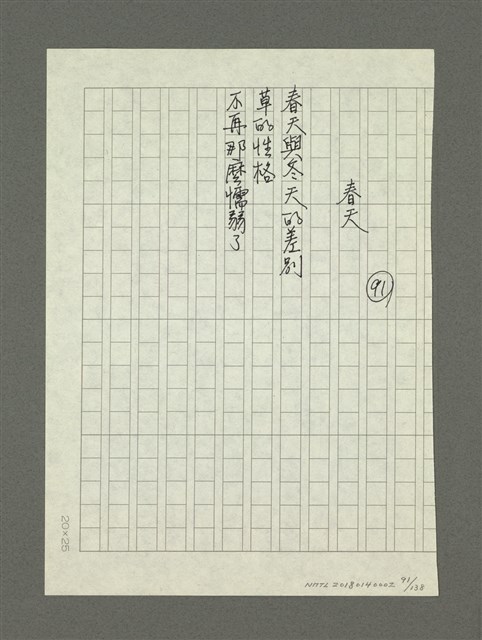 春天
91
春天與冬天的差別
草的性格
不再那麼懦弱了
20×25
NMTL 20180140002 91/138